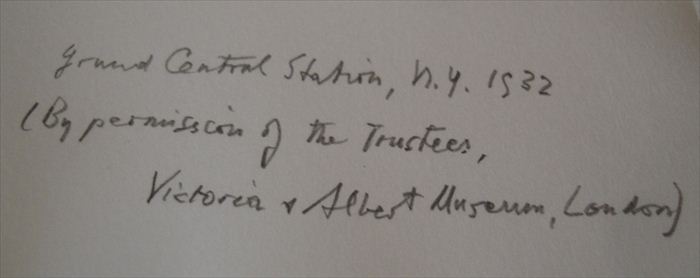 Grand Central Station, N.Y. 1932
(By permission of the Trustees,
Victoria & Albert Museum, London)